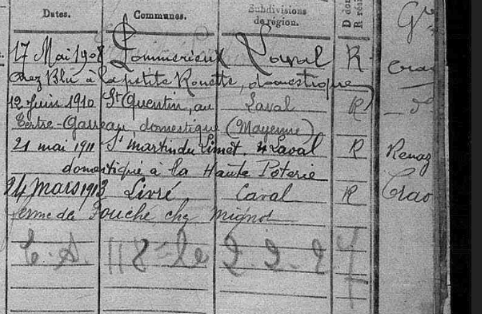 Dates.
Communes.
Subdivisions
de région.
17 Mai 1908 Pommerieux Laval R
chez Blu à la petite Rouette, domestique
12 Juin 1910 St Quentin, au Laval R
Tertre-Garreau, domestique (Mayenne)
21 mai 1911 St Martin du Limet Laval R Renaz
domestique à la Haute Poterie
24 Mars 1913 Livré Laval R Crao
ferme de Fouche chez Mignot